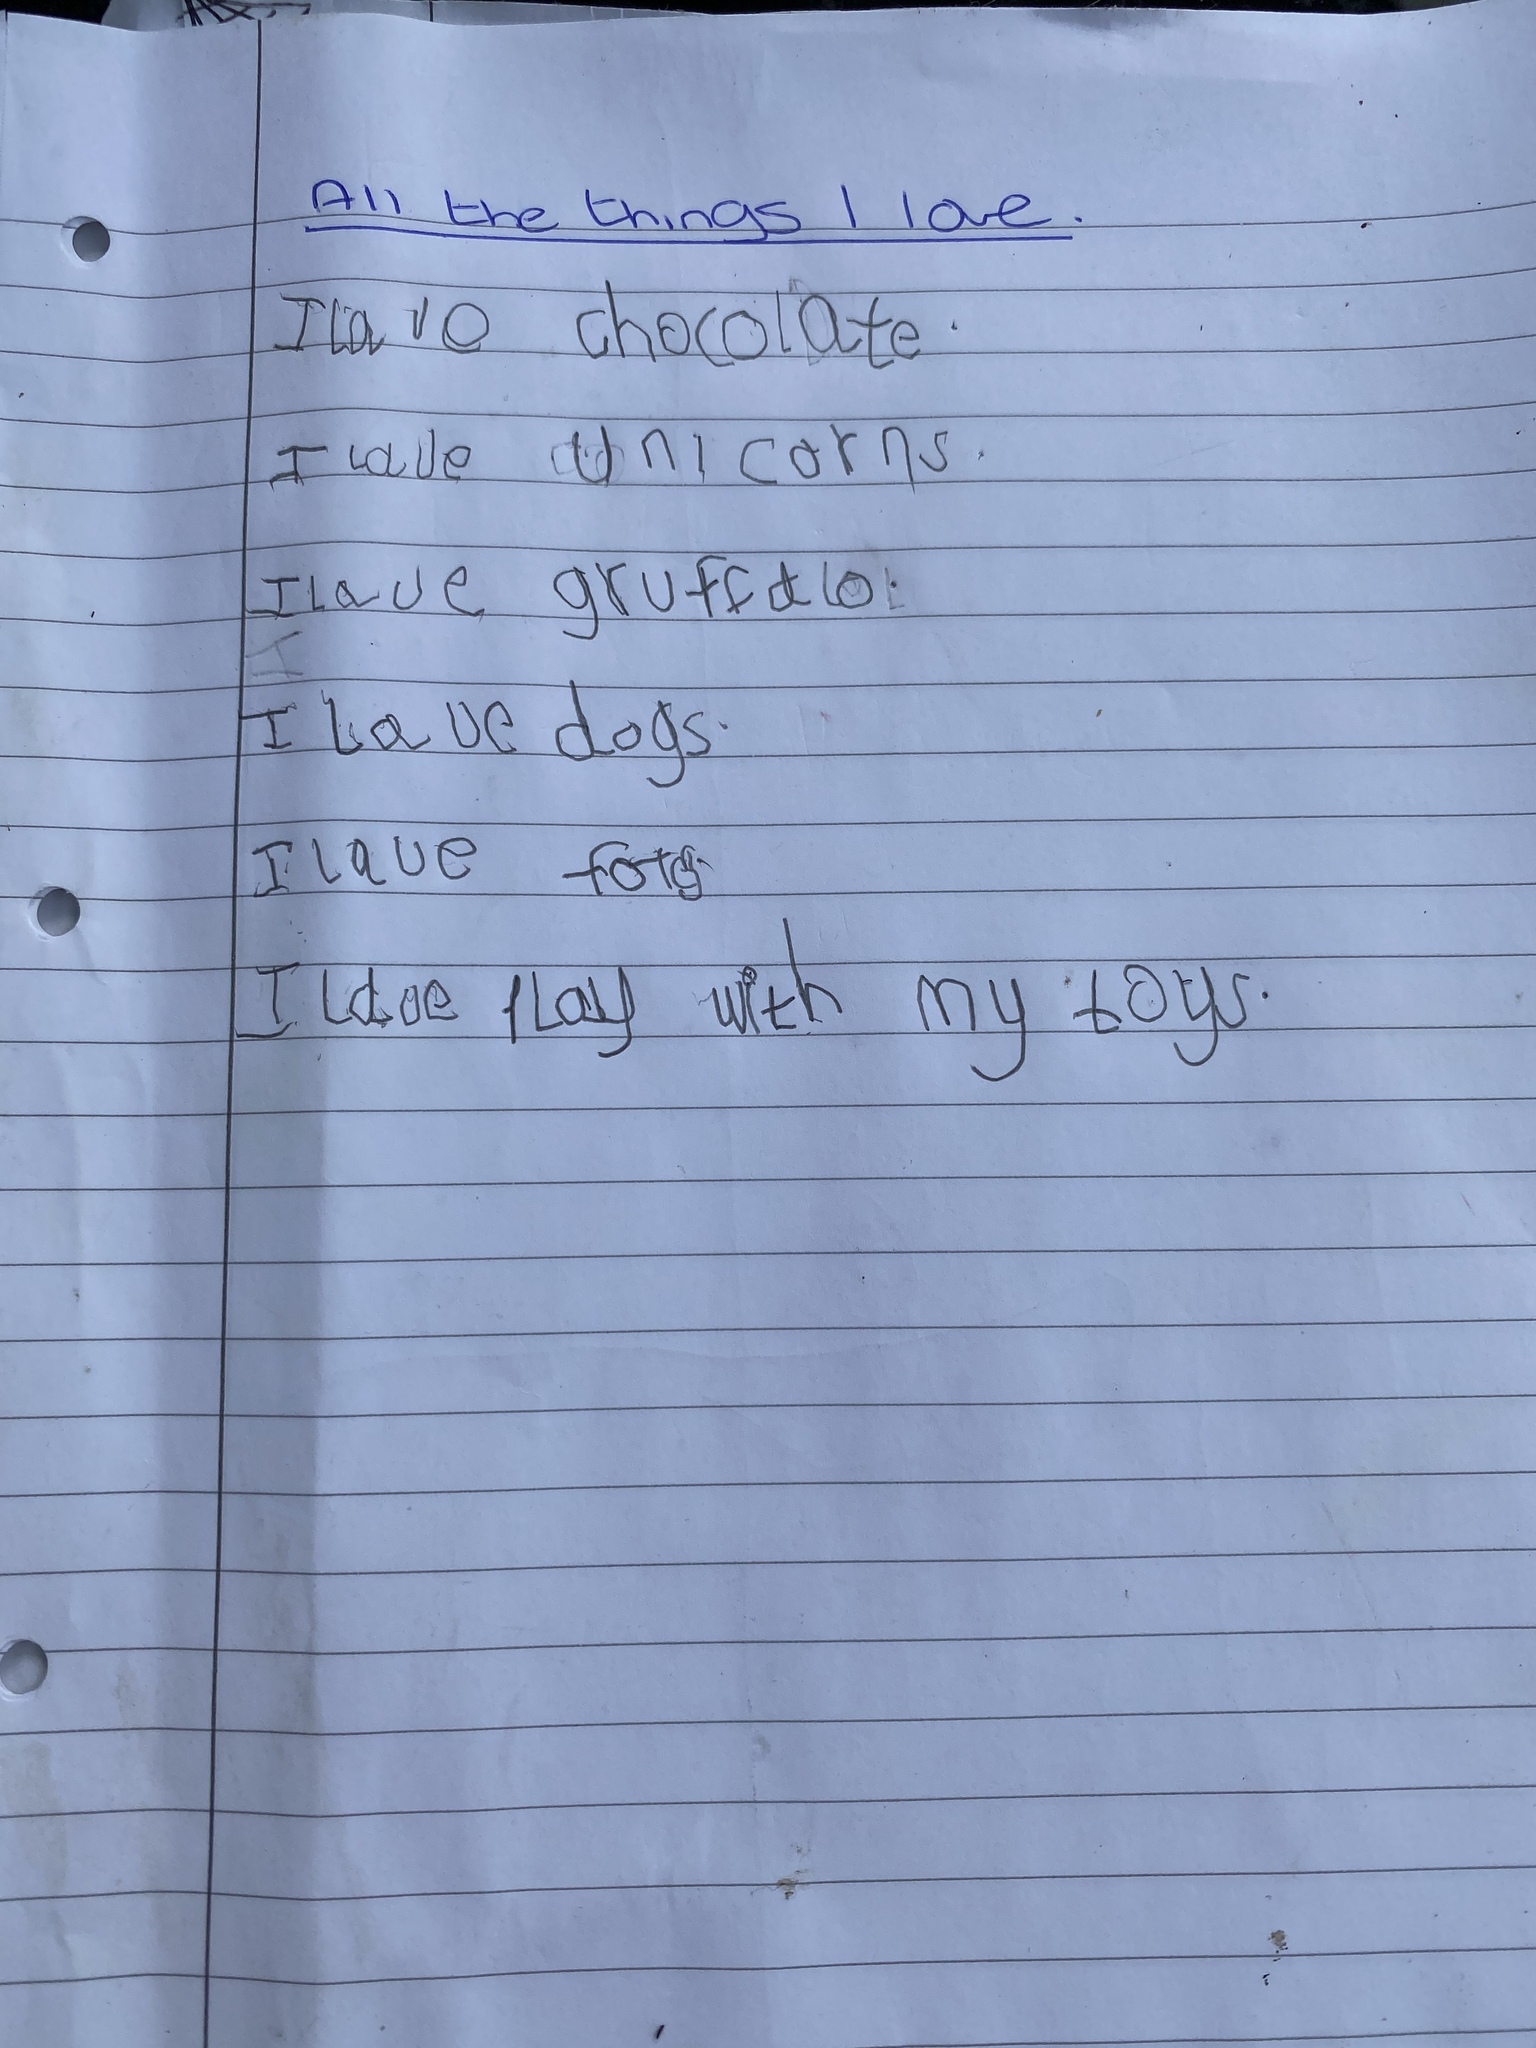 All the things I love.
I lave chocolate.
I lave unicorns.
I lave gruffalo.
I lave dogs.
I lave
I lave play with my toys.